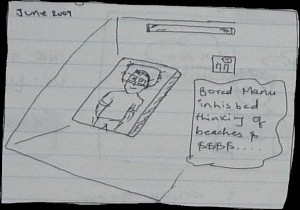 June 2009
Bored Manu
in his bad
thinking of
beaches &
$$$$...